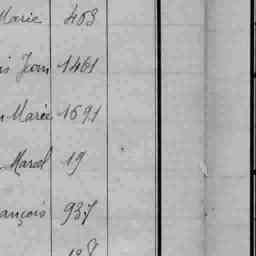 Marie 403
is Jean 1461
n Marie 1691
Marcel 19
ançois 937